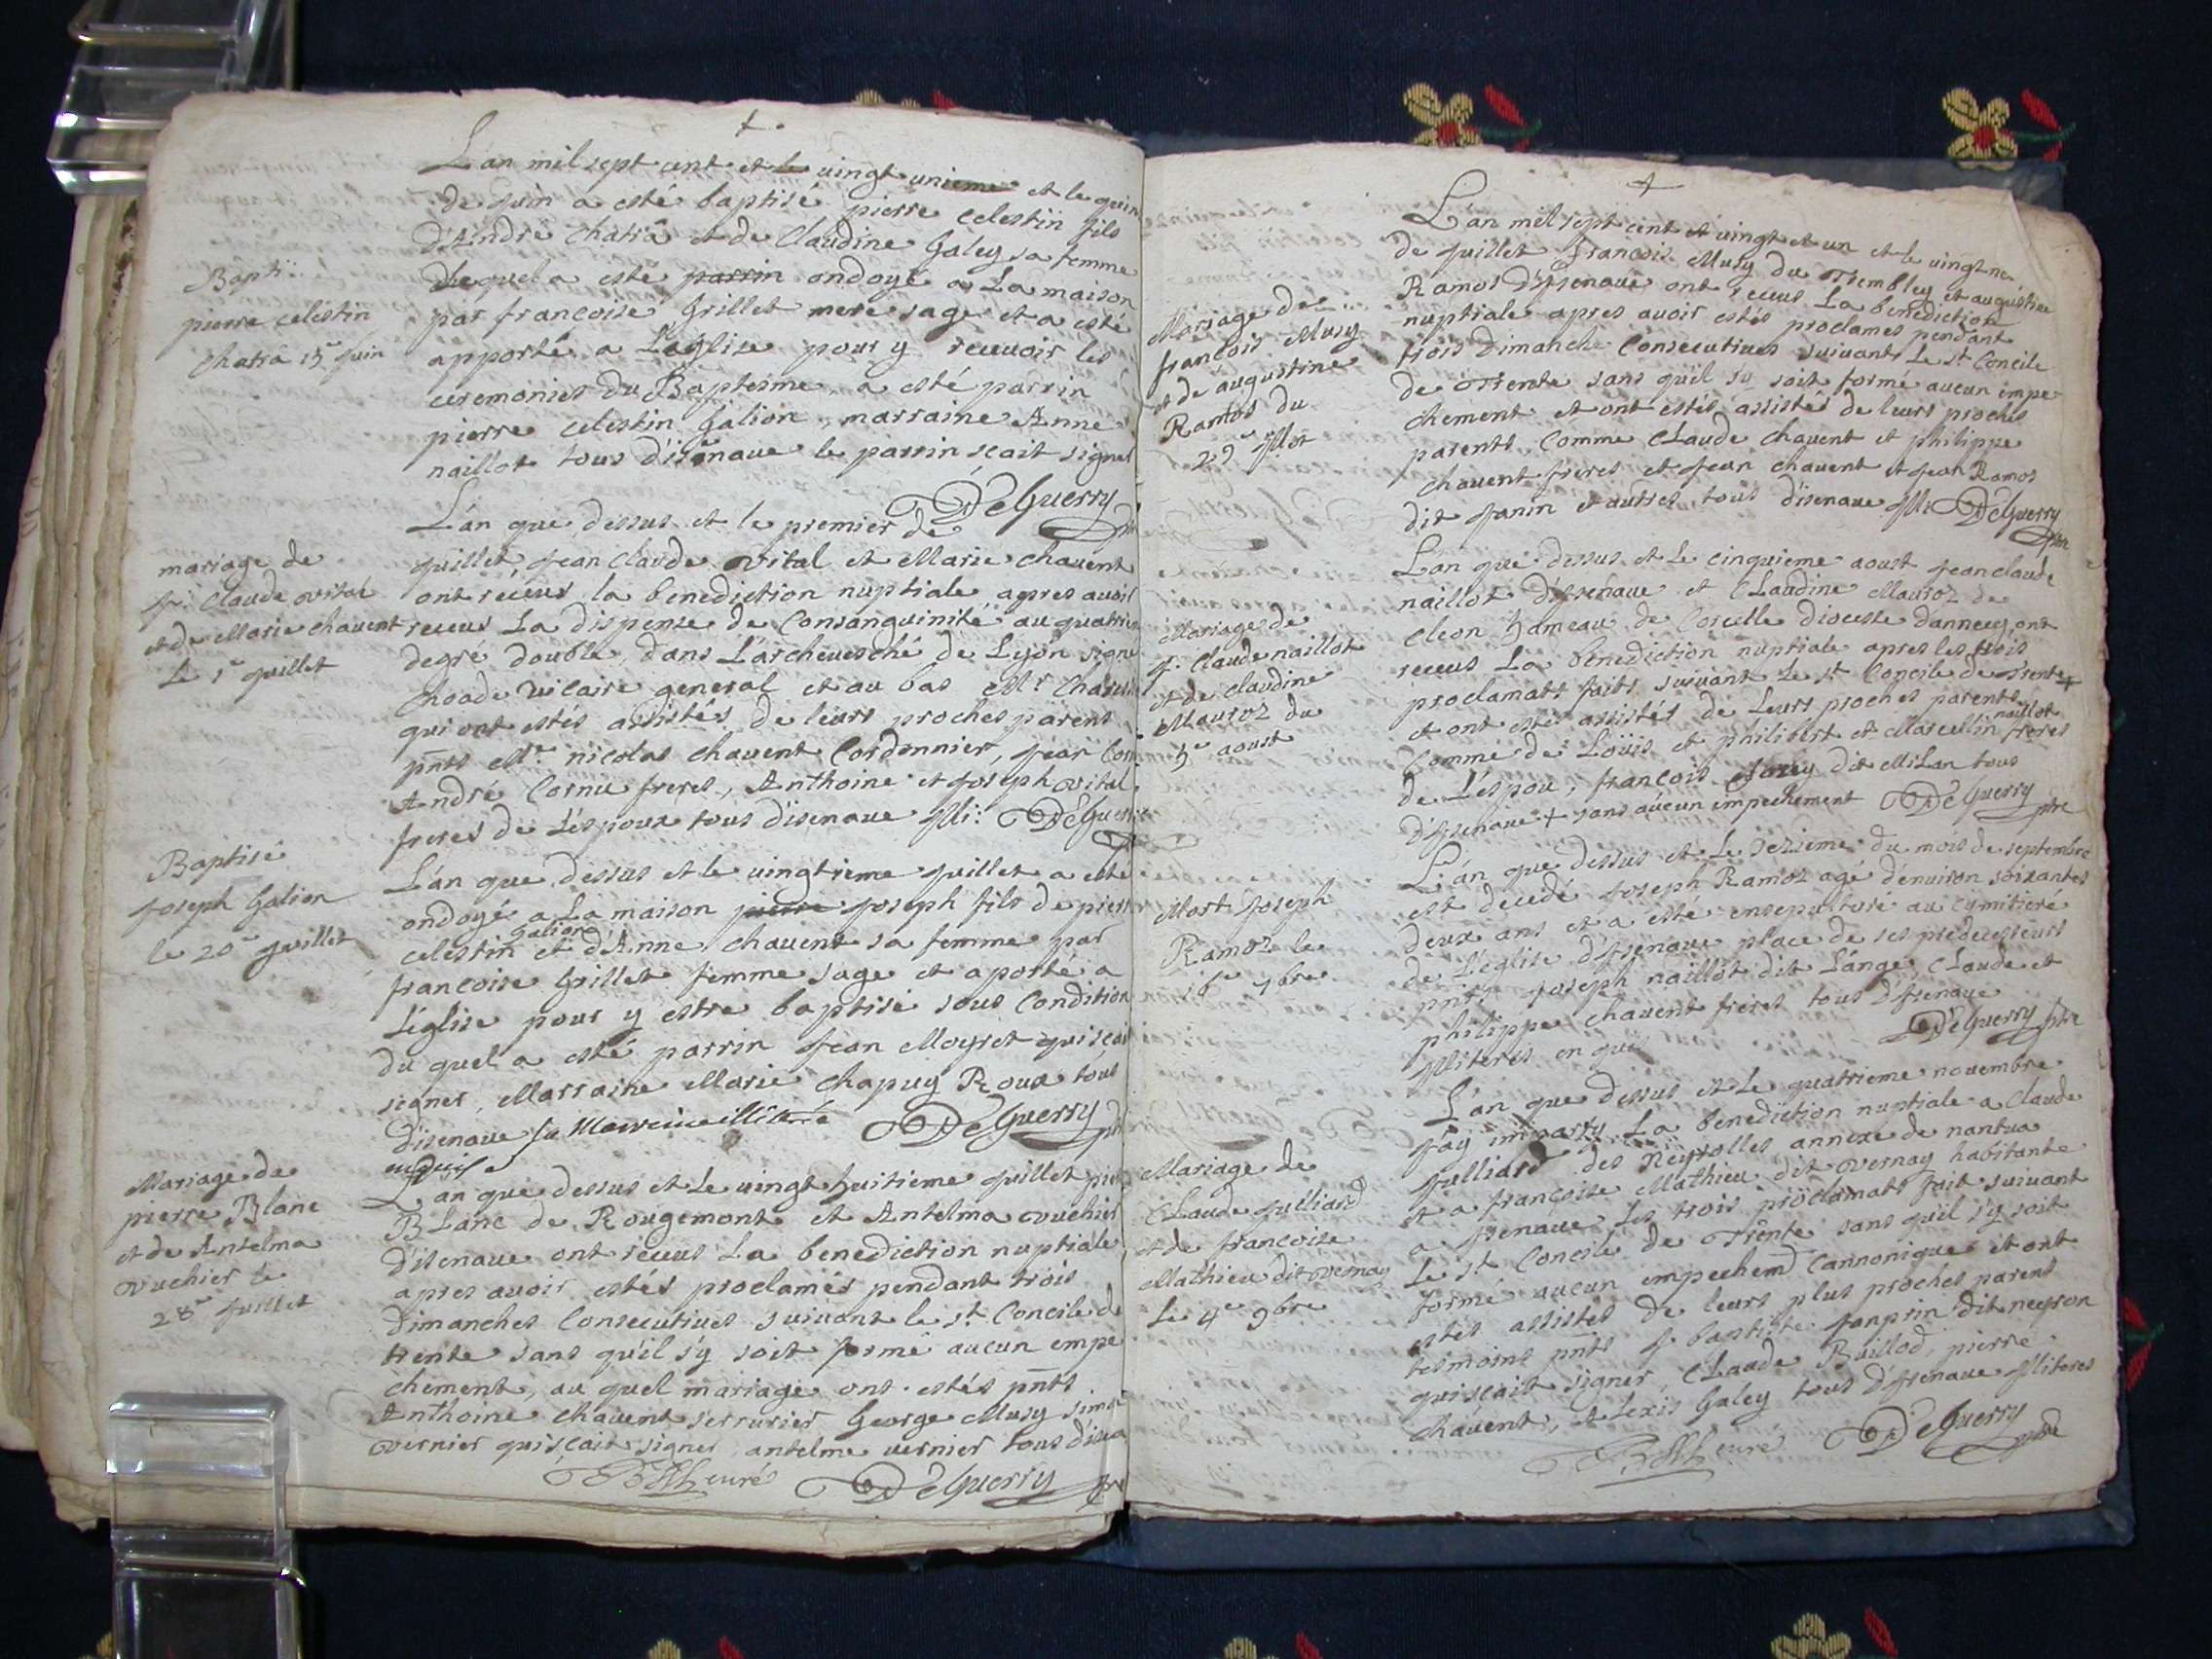 L'an mil sept cent et le vingt unieme et le quin
de juin a esté baptisé pierre celestin fils
d'André Chatrâ et de Claudine Galey sa femme
Lequel a esté parrin ondoyé a La maison
par francoise Grillet mere sage et a esté
apporté a L'eglise pour y recevoir les
ceremonies du Baptesme, a esté parrin
pierre celestin Galion, marraine Anne
naillot tous d'isenaue le parrin scait signer
DeGuerry ptre
Bapti:
pierre celestin
Chatrâ 15e juin
L'an que dessus et le premier de
juillet jean claude vital et Marie chauent
ont receus la benediction nuptiale apres auoir
receus La dispense de Consanguinité au quatrie
degré double, dans L'archeuesché de Lyon signé
choade vicaire general et au bas Mr
qui ont estés assistés de leurs proches parens
pnts Mre nicolas chauent Cordonnier, jean Cor
André Cornu freres, Anthoine et joseph vital
freres de L'espoux tous d'isenaue jlli: DeGuerry
mariage de
j: Claude vital
et de Marie chauent
Le 1er juillet
L'an que dessus et le vingtieme juillet a esté
ondoyé a La maison pierre joseph fils de pierr
celestin Galion et d'Anne chauent sa femme par
francoise Grillet femme sage et aporté a
L'eglise pour y estre baptisé sous Condition
du quel a esté parrin jean Moyret qui scai
signer, Marraine Marie Chapuy Roux tous
d'isenaue la Marreine illitterée DeGuerry ptre
enquise
Baptisé
joseph Galion
le 20e juillet
L'an que dessus et Le vingt huitieme juillet pier
BLanc de Rougemont et Antelma vuchier
d'isenaue ont receus La benediction nuptiale
apres auoir estés proclamés pendant trois
Dimanches Consecutiues suiuant le st Concile de
trente sans qu'il s'y soit formé aucun empe
chement, au quel mariage ont estés pnts
Anthoine chauent serrurier George Musy simo
vernier qui scait signer antelme vernier tous d'isena
curé DeGuerry ptre
Mariage de
pierre Blanc
et de Antelma
vuchier le
28e juillet
L'an mil sept cent et vingt et un et le vingt ne
de juillet francois Musy du Trembley et augustine
Ramos d'isenaue ont receus La benediction
nuptiale apres auoir estés proclames pendant
trois Dimanche Consecutiues suiuant Le st Concile
de Trente sans qu'il s'y soit formé aucun impe
chement et ont estés assistés de leurs proches
parents Comme CLaude chauent et philippe
chauent freres et jean chauent et jean Ramos
dit janin et autres tous d'isenaue jlli: DeGuerry ptre
Mariage de
francois Musy
et de augustine
Ramos du
29e jllot
L'an que dessus et Le cinquieme aoust jean claude
naillot d'isenaue et CLaudine Mauroz de
Cleon hameau de Corcelle diocese d'annecy, ont
receus La benediction nuptiale apres les trois
proclamats faits suiuant Le st Concile de Trente +
et ont estés assistés de Leurs proches parents
Comme de Loüis et philibert et Marcellin naillot freres
de L'espou, francois dit MiLan tous
d'isenaue + sans aucun impechement DeGuerry ptre
Mariage de
j. Claude naillot
et de claudine
Mauroz du
5e aoust
L'an que dessus et Le sezieme du mois de septembre
est decedé joseph Ramoz agé d'enuiron soixantes
deux ans et a esté ensepulturé au Cymitieré
de L'eglise d'isenaue place de ses predecesseurs
pnts joseph naillot dit L'ange, CLaude et
philippe chauent freres tous d'isenaue
jlliterés enquis DeGuerry ptre
Mort joseph
Ramoz le
16e 7bre
L'an que dessus et Le quatrieme nouembre
j'ay imparty La benediction nuptiale a Claude
julliard des Neyrolles annexe de nantua
et a francoise Mathieu dit vernay habitante
a jsenaue Les trois proclamats fait suiuant
Le st Concile de Trente sans qu'il s'y soit
formé aucun empechemt Cannonique et ont
estés assistes de leurs plus proches parens
tesmoins pnts j baptiste janprin dit neyron
qui scait signer, CLaude Buillod, pierre
chauent, ALexis Galey tous d'isenaue jlliteres
curé DeGuerry ptre
Mariage de
CLaude julliard
et de francoise
Mathieu dit vernay
Le 4e 9bre